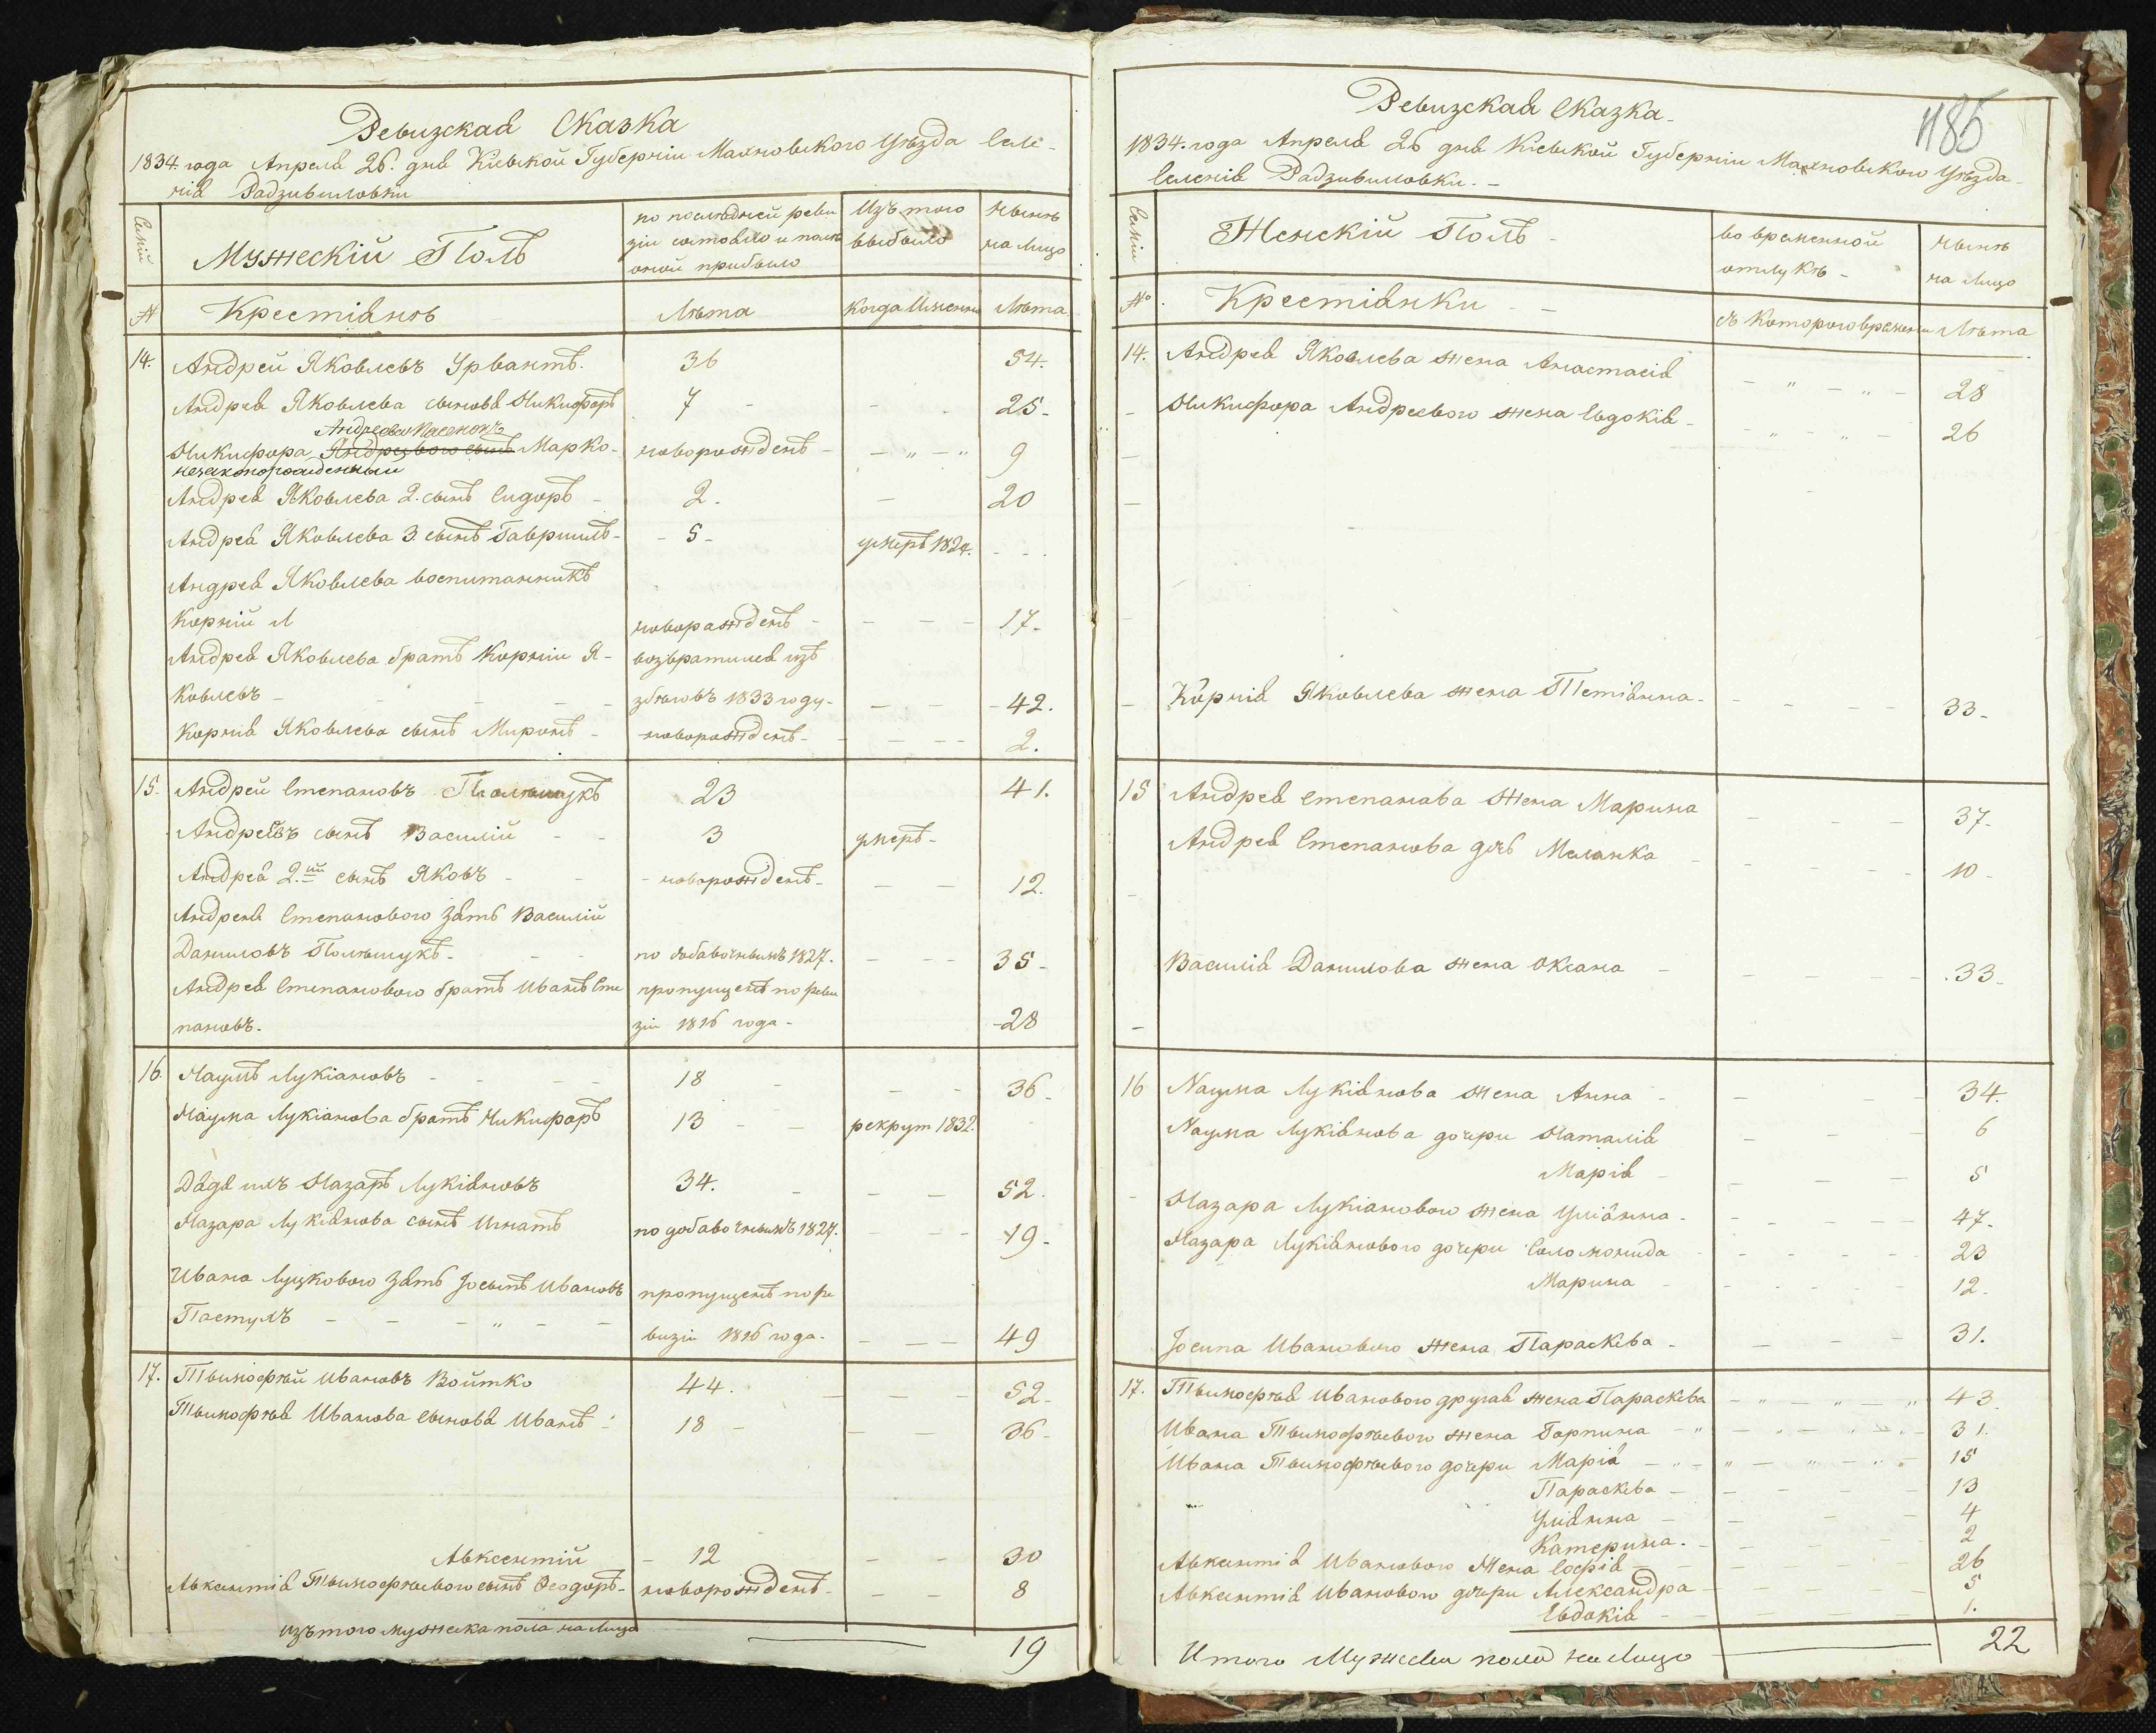 Ревизская Сказка
1834. года Апреля 26. дня Кіевской Губерніи Махновского Уѣзда Селе-
нія Радзивиловки
Семіи
Мужескій Полъ
по последней реви
зіи состояло и после
оной прибыло
Изъ того
выбыло
Нынѣ
на Лицо
№
Крестіянъ
Лѣта
Когда Именно
Лѣта
14. Андрей Яковлевъ Урвантъ. 36 54.
Андрея Яковлева сыновя Никифоръ 7 25-
Андреева
Никифора Андреевого сынъ Марко- новорожденъ - - " - " 9
незаконорожденный
Андрея Яковлева 2. сынъ Сидоръ - 2. - 20
Андрея Яковлева 3. сынъ Гавриилъ- - 5- умеръ 1824. - - -
Андрея Яковлева воспитанникъ
Корній новорожденъ - - - - 17-
Андрея Яковлева братъ Корній Я- возвратился изъ
ковлевъ - збѣговъ 1833 году- - - - 42.
Корнія Яковлева сынъ Миронъ - новорожденъ- - - - 2.
15. Андрей Степановъ Полищукъ 23 41.
Андреевъ сынъ Василій - - 3 умеръ-
Андрея 2.ій сынъ Яковъ - - - новорожденъ- - - 12.
Андрея Степанового зять Василій
Даниловъ Полѣщукъ- по добавочнымъ 1827. - - - 35-
Андрея Степанового братъ Иванъ Сте пропущенъ по реви
пановъ. зіи 1816 года- -28
16. Наумъ Лукіановъ - - - 18 - - - 36-
Наума Лукіанова братъ Никифоръ 13 - - рекрут 1832.
Дядя ихъ Назаръ Лукіяновъ 34. - - - 52.
Назара Лукіянова сынъ Игнатъ по добавочнымъ 1827. - - - 19-
Ивана Луцкового зять Іосыпъ Ивановъ пропущенъ по ре
Пастухъ - - - " - - визіи 1816 года- - - - 49
17. Тымофѣй Ивановъ Войтко 44. - - - 52-
Тымофѣя Иванова сыновя Иванъ - 18 - - - 36-
Авксентій - 12 - - 30
Авксентія Тымофѣевого сынъ Феодоръ- новорожденъ- - - 8
изъ того мужеска пола на Лицо 19
1185
Ревизская Сказка-
1834. года Апреля 26 дня Кіевской Губерніи Махновского Уѣзда-
Селенія Радзивиловки. -
Семіи
Женскій Полъ -
во временной
отлукѣ -
Нынѣ
на Лицо
№.
Крестіянки - -
съ Которого времени
Лѣта
14. Андрея Яковлева жена Анастасія - " - " - 28
Никифора Андреевого жена Евдокія - - " - " - 26
Корнія Яковлева жена Тетіянна- - - - - 33-
15 Андрея Степанова жена Марина - - - 37-
Андрея Степанова дочь Меланка - - - - 10-
Василія Данилова жена Оксана - - - - - 33-
16 Наума Лукіянова жена Анна - - - - 34.
Наума Лукіянова дочери Наталія - - - 6
Марія - - - - 5
Назара Лукіанового жена Уліянна- - - - - 47-
Назара Лукіянового дочери Соломонида - - - - 23
Марина - - - - - 12.
Іосипа Иванового жена Параскева - - - - 31.
17. Тымофѣя Иванового другая жена Параскева - " - " - " 43.
Ивана Тымофѣевого жена Горпина - " - " - " - 31.
Ивана Тымофѣевого дочери Марія - " - " - " - " 15
Параскева - - - - - 13
Уліянна - - - - 4
Катерина. - - - - 2
Авксентія Иванового жена Софія - - - 26
Авксентія Иванового дочери Александра - - - - 5
Евдокія - - - - 1.
Итого Мужеска пола на Лицо 22